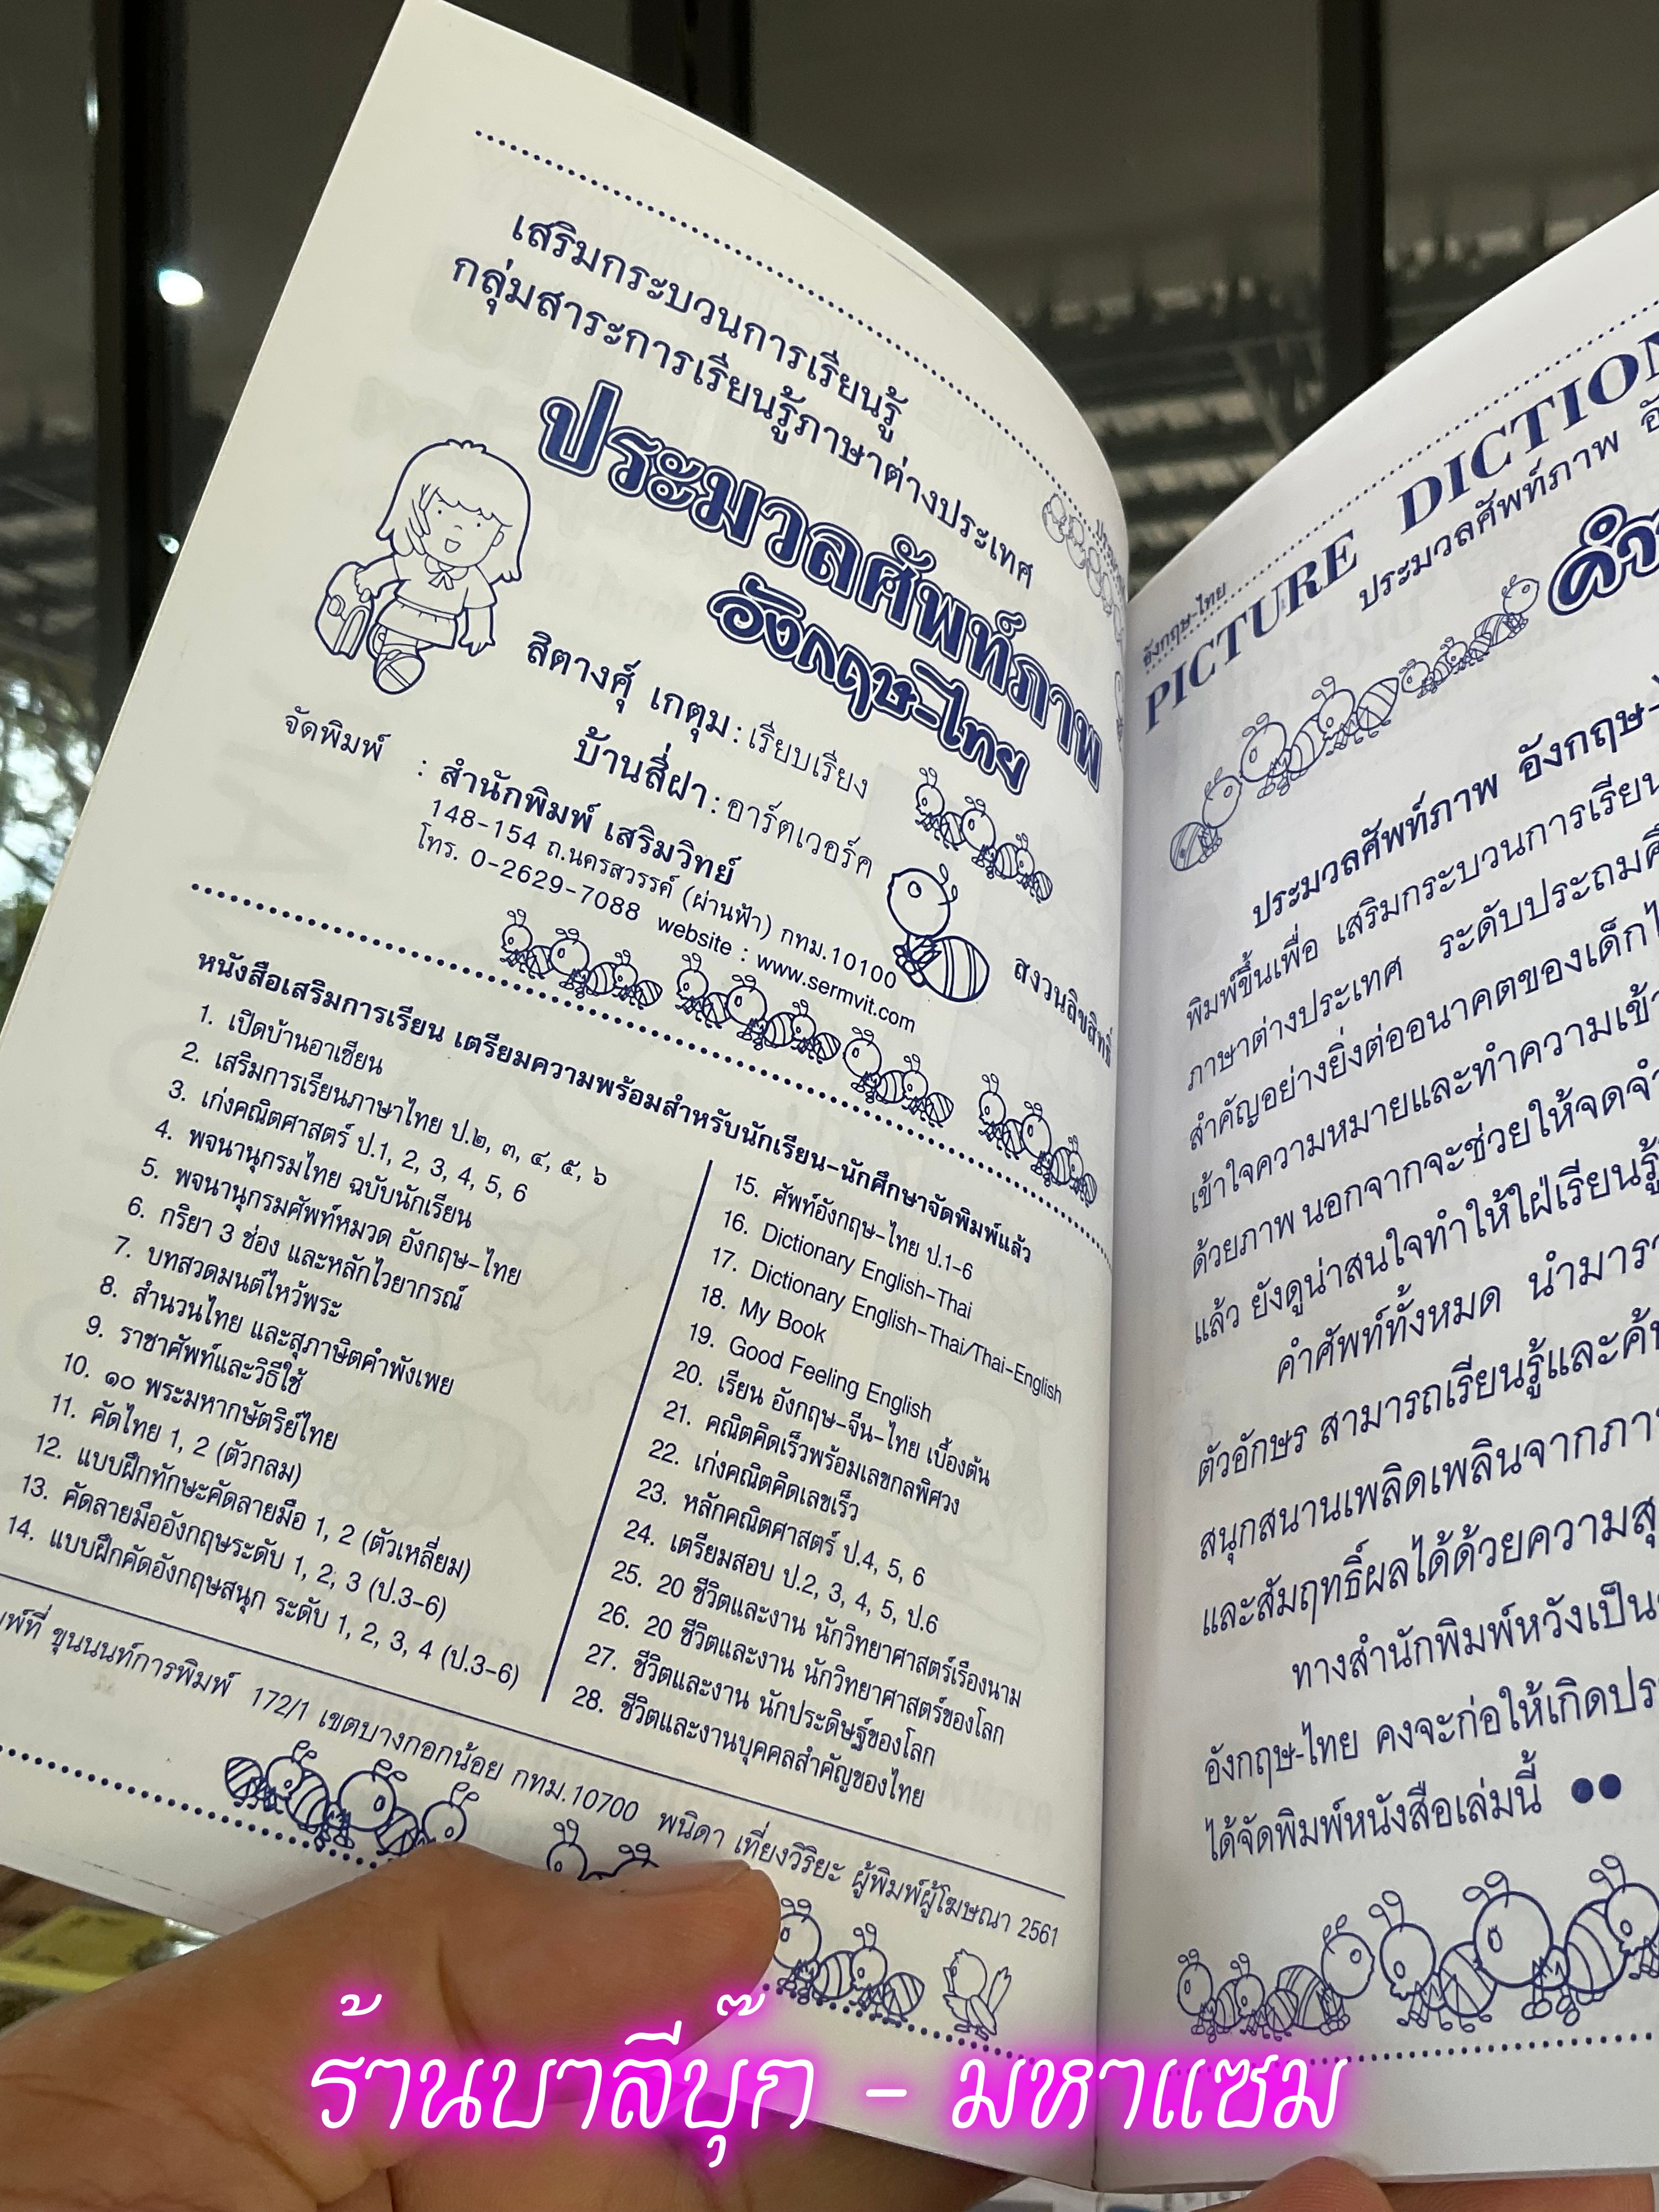 เสริมกระบวนการเรียนรู้
กลุ่มสาระการเรียนรู้ภาษาต่างประเทศ
ประมวลศัพท์ภาพ
อังกฤษ-ไทย
สิตางศุ์ เกตุม : เรียบเรียง
บ้านสี่ฝา : อาร์ตเวอร์ค
สงวนลิขสิทธิ์
จัดพิมพ์ : สำนักพิมพ์ เสริมวิทย์
148-154 ถ.นครสวรรค์ (ผ่านฟ้า) กทม.10100
โทร. 0-2629-7088 website : www.sermvit.com
หนังสือเสริมการเรียน เตรียมความพร้อมสำหรับนักเรียน-นักศึกษาจัดพิมพ์แล้ว
1. เปิดบ้านอาเซียน
2. เสริมการเรียนภาษาไทย ป.๒, ๓, ๔, ๕, ๖
3. เก่งคณิตศาสตร์ ป.1, 2, 3, 4, 5, 6
4. พจนานุกรมไทย ฉบับนักเรียน
5. พจนานุกรมศัพท์หมวด อังกฤษ-ไทย
6. กริยา 3 ช่อง และหลักไวยากรณ์
7. บทสวดมนต์ไหว้พระ
8. สำนวนไทย และสุภาษิตคำพังเพย
9. ราชาศัพท์และวิธีใช้
10. ๑๐ พระมหากษัตริย์ไทย
11. คัดไทย 1, 2 (ตัวกลม)
12. แบบฝึกทักษะคัดลายมือ 1, 2 (ตัวเหลี่ยม)
13. คัดลายมืออังกฤษระดับ 1, 2, 3 (ป.3-6)
14. แบบฝึกคัดอังกฤษสนุก ระดับ 1, 2, 3, 4 (ป.3-6)
15. ศัพท์อังกฤษ-ไทย ป.1-6
16. Dictionary English-Thai
17. Dictionary English-Thai/Thai-English
18. My Book
19. Good Feeling English
20. เรียน อังกฤษ-จีน-ไทย เบื้องต้น
21. คณิตคิดเร็วพร้อมเลขกลพิศวง
22. เก่งคณิตคิดเลขเร็ว
23. หลักคณิตศาสตร์ ป.4, 5, 6
24. เตรียมสอบ ป.2, 3, 4, 5, ป.6
25. 20 ชีวิตและงาน นักวิทยาศาสตร์เรืองนาม
26. 20 ชีวิตและงาน นักวิทยาศาสตร์ของโลก
27. ชีวิตและงาน นักประดิษฐ์ของโลก
28. ชีวิตและงานบุคคลสำคัญของไทย
ขุนนนท์การพิมพ์ 172/1 เขตบางกอกน้อย กทม.10700 พนิดา เที่ยงวิริยะ ผู้พิมพ์ผู้โฆษณา 2561
อังกฤษ-ไทย
PICTURE DICTION
ประมวลศัพท์ภาพ
ประมวลศัพท์ภาพ อังกฤษ-
พิมพ์ขึ้นเพื่อ เสริมกระบวนการเรียน
ภาษาต่างประเทศ ระดับประถมศึ
สำคัญอย่างยิ่งต่ออนาคตของเด็ก
เข้าใจความหมายและทำความเข้า
ด้วยภาพ นอกจากจะช่วยให้จดจำ
แล้ว ยังดูน่าสนใจทำให้ใฝ่เรียนรู้
คำศัพท์ทั้งหมด นำมา
ตัวอักษร สามารถเรียนรู้และค้น
สนุกสนานเพลิดเพลินจากภา
และสัมฤทธิ์ผลได้ด้วยความสุ
ทางสำนักพิมพ์หวังเป็น
อังกฤษ-ไทย คงจะก่อให้เกิดประ
ได้จัดพิมพ์หนังสือเล่มนี้
ร้านบาลีบุ๊ก - มหาแซม